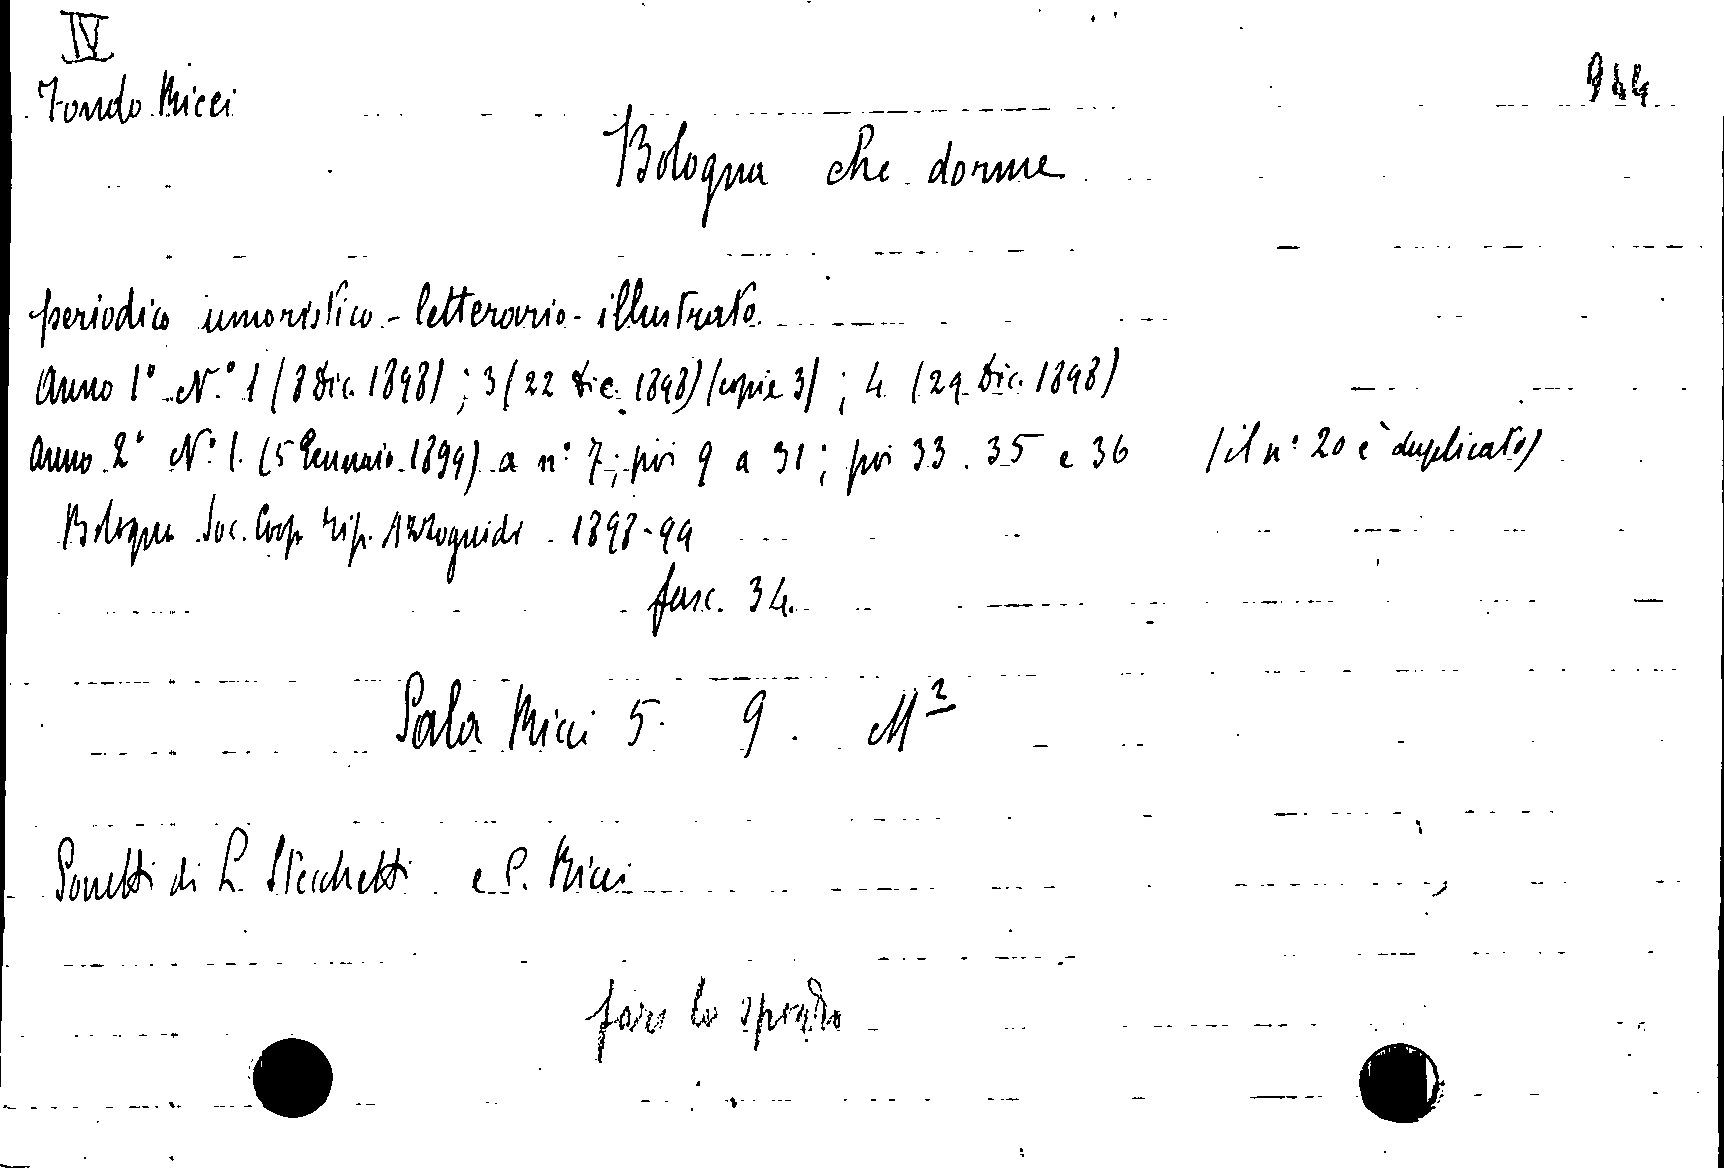 IV
Fondo Ricci
944
Bologna che dorme
periodico umoristico - letterario - illustrato
Anno 1° N.° 1 (8 Dic. 1898) ; 3 (22 Dic. 1898) (copie 3) ; 4 (29 Dic. 1898)
Anno 2° N.° 1. (5 Gennaio 1899) a n° 7 ; poi 9 a 31 ; poi 33. 35 e 36 (il n° 20 è duplicato)
Bologna Soc. Coop. Tip. Azzoguidi 1898-99
fasc. 34.
Sala Ricci 5. 9. M²
Sonetti di L. Stecchetti e C. Ricci
fare lo spoglio